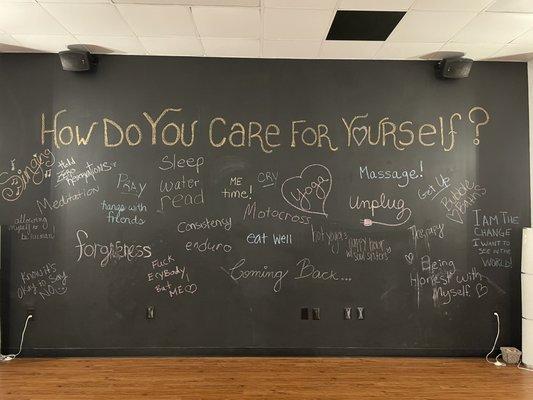 How Do You Care For Yourself?
Singing
Meditation
allowing
myself to
be human
Know it's
Okay to Say
No
forgiveness
Pray
hangs with
friends
Sleep
Water
read
Consistency
enduro
Fuck
Everybody
But
ME
ME
time!
CRY
Motocross
eat Well
Coming Back...
Yoga
hot yoga
happy hour
w/ soul sisters
Massage!
unplug
Get up
Bubble
Baths
therapy
Being
Honest with
Myself.
I AM THE
CHANGE
I WANT TO
SEE IN THE
WORLD!